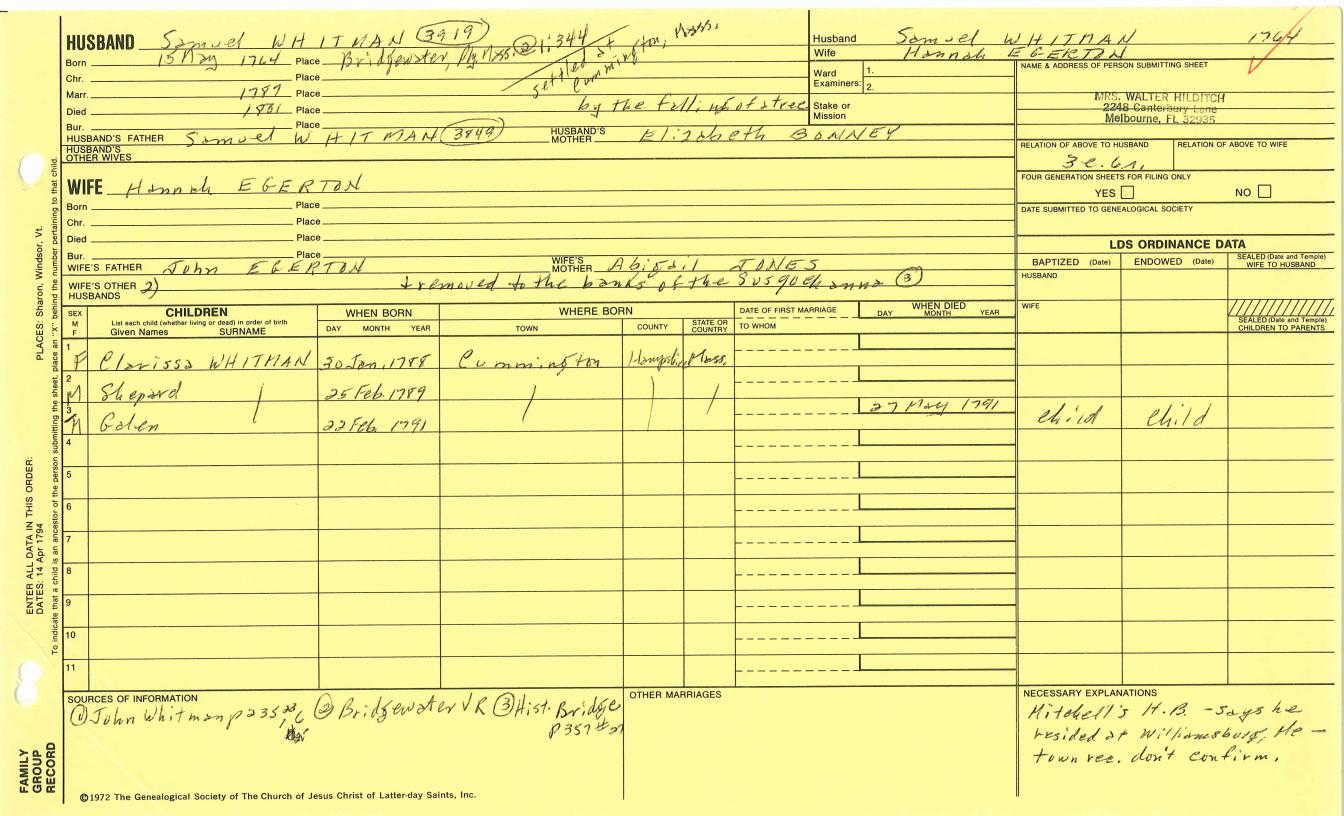 HUSBAND Samuel WHITMAN (3919)
Born 15 May 1764 Place Bridgewater, Ply, Mass. ② 1:344
settled at Cummington, Mass.
Chr. Place
Marr. 1787 Place
Died 1801 Place by the falling of a tree
Bur. Place
HUSBAND'S FATHER Samuel WHITMAN (3849) HUSBAND'S MOTHER Elizabeth BONNEY
HUSBAND'S OTHER WIVES
WIFE Hannah EGERTON
Born Place
Chr. Place
Died Place
Bur. Place
WIFE'S FATHER John EGERTON WIFE'S MOTHER Abigail JONES
WIFE'S OTHER HUSBANDS 2) + removed to the banks of the Susquehanna ③
Husband Samuel WHITMAN 1764
Wife Hannah EGERTON
Ward Examiners: 1.
2.
Stake or Mission
NAME & ADDRESS OF PERSON SUBMITTING SHEET
MRS. WALTER HILDITCH
2248 Canterbury Lane
Melbourne, FL 32935
RELATION OF ABOVE TO HUSBAND RELATION OF ABOVE TO WIFE
3 c. 6r.
FOUR GENERATION SHEETS FOR FILING ONLY
YES NO
DATE SUBMITTED TO GENEALOGICAL SOCIETY
LDS ORDINANCE DATA
BAPTIZED (Date) ENDOWED (Date) SEALED (Date and Temple) WIFE TO HUSBAND
HUSBAND
WIFE
SEALED (Date and Temple) CHILDREN TO PARENTS
SEX M F
CHILDREN
List each child (whether living or dead) in order of birth
Given Names SURNAME
WHEN BORN
DAY MONTH YEAR
WHERE BORN
TOWN COUNTY STATE OR COUNTRY
DATE OF FIRST MARRIAGE
TO WHOM
WHEN DIED
DAY MONTH YEAR
1 F Clarissa WHITMAN 30 Jan. 1788 Cummington Hampshire Mass.
2 M Shepard 25 Feb. 1789
3 M Galen 22 Feb. 1791 27 May 1791 child child
4
5
6
7
8
9
10
11
SOURCES OF INFORMATION
① John Whitman p 235, ② Bridgewater VR ③ Hist. Bridge
p 357 #21
OTHER MARRIAGES
NECESSARY EXPLANATIONS
Mitchell's H.B. - says he
resided at Williamsburg, Me -
town rec. don't confirm.
©1972 The Genealogical Society of The Church of Jesus Christ of Latter-day Saints, Inc.
FAMILY
GROUP
RECORD
ENTER ALL DATA IN THIS ORDER:
DATES: 14 Apr 1794
PLACES: Sharon, Windsor, Vt.
To indicate that a child is an ancestor of the person submitting the sheet, place an "X" behind the number pertaining to that child.